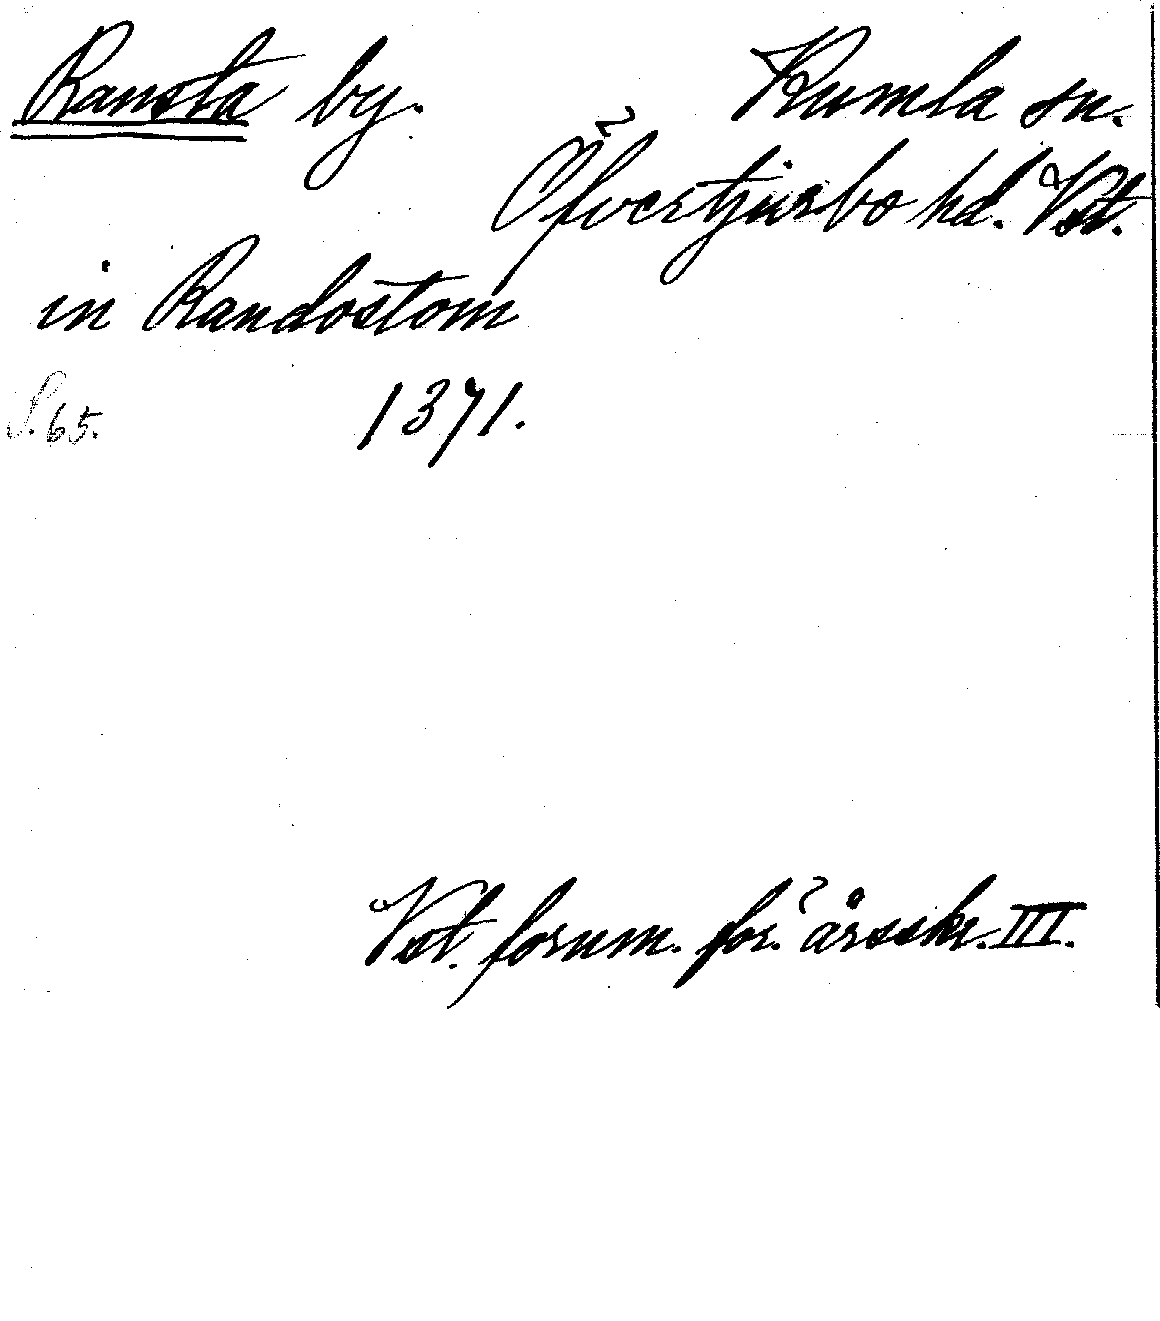 Ransta by. Kumla sn.
Öfvertjurbo hd. Vstm.
in Randostom
S. 65. 1371.
Vst. fornm. för. årsskr. III.